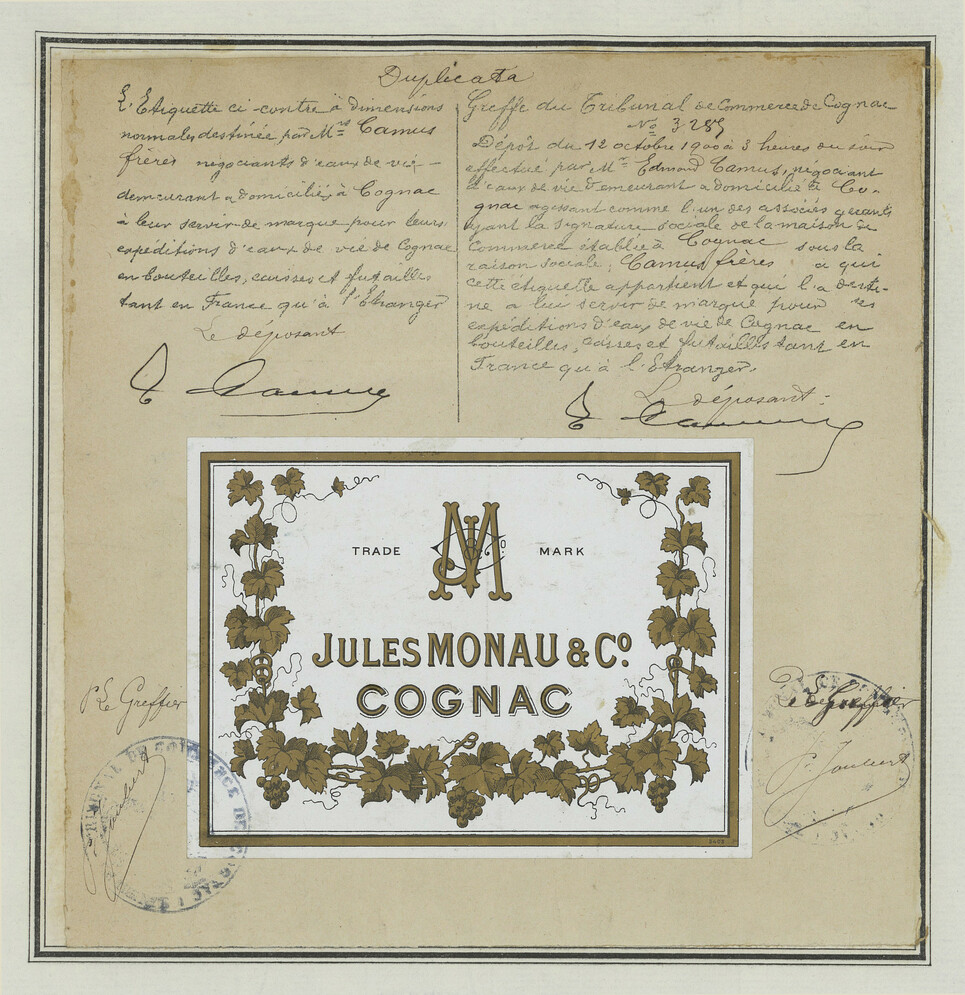 Duplicata
L'Etiquette ci-contre à dimensions
normales destinée par Mrs Camus
frères négociants d'eaux de vie -
demeurant & domiciliés à Cognac
à leur servir de marque pour leurs
expéditions d'eaux de vie de Cognac
en bouteilles, caisses et futailles
tant en France qu'à l'Etranger
Le déposant
E Camus
Greffe du Tribunal de Commerce de Cognac
No 3.257
Dépôt du 12 octobre 1900 à 3 heures du soir
effectué par Mr Edmond Camus, négociant
d'eaux de vie demeurant & domicilié à Co-
gnac agissant comme l'un des associés gérants
ayant la signature sociale de la maison de
Commerce établie à Cognac sous la
raison sociale: Camus frères à qui
cette étiquette appartient et qui l'a desti-
né à leur servir de marque pour les
expéditions d'eaux de vie de Cognac en
bouteilles, caisses et futailles tant en
France qu'à l'Etranger.
Le déposant:
E Camus
TRADE MARK
JMCo
JULES MONAU & Co.
COGNAC
P Le Greffier
Joubert
TRIBUNAL DE COMMERCE DE COGNAC
Le Greffier
Joubert